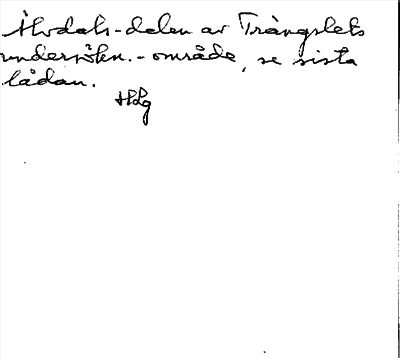 Älvdals-delen av Trängslets
undersökn.-område, se sista
lådan.
HLg